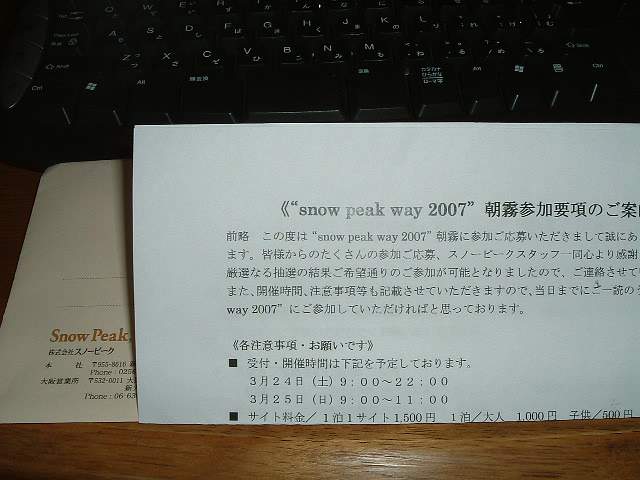 《“snow peak way 2007” 朝霧参加要項のご案
前略 この度は “snow peak way 2007” 朝霧に参加ご応募いただきまして誠にあ
ます。皆様からのたくさんの参加ご応募、スノーピークスタッフ一同心より感謝
厳選なる抽選の結果ご希望通りのご参加が可能となりましたので、ご連絡させて
また、開催時間、注意事項等も記載させていただきますので、当日までにご一読のう
way 2007” にご参加していただければと思っております。
《各注意事項・お願いです》
■ 受付・開催時間は下記を予定しております。
3月24日(土)9:00~22:00
3月25日(日)9:00~11:00
■ サイト料金/ 1泊1サイト 1,500円 1泊/大人 1,000円 子供/500円
Snow Peak
株式会社スノーピーク
本 社 〒955-8616
Phone : 0256
大阪営業所 〒532-0011 大
Phone : 06-63